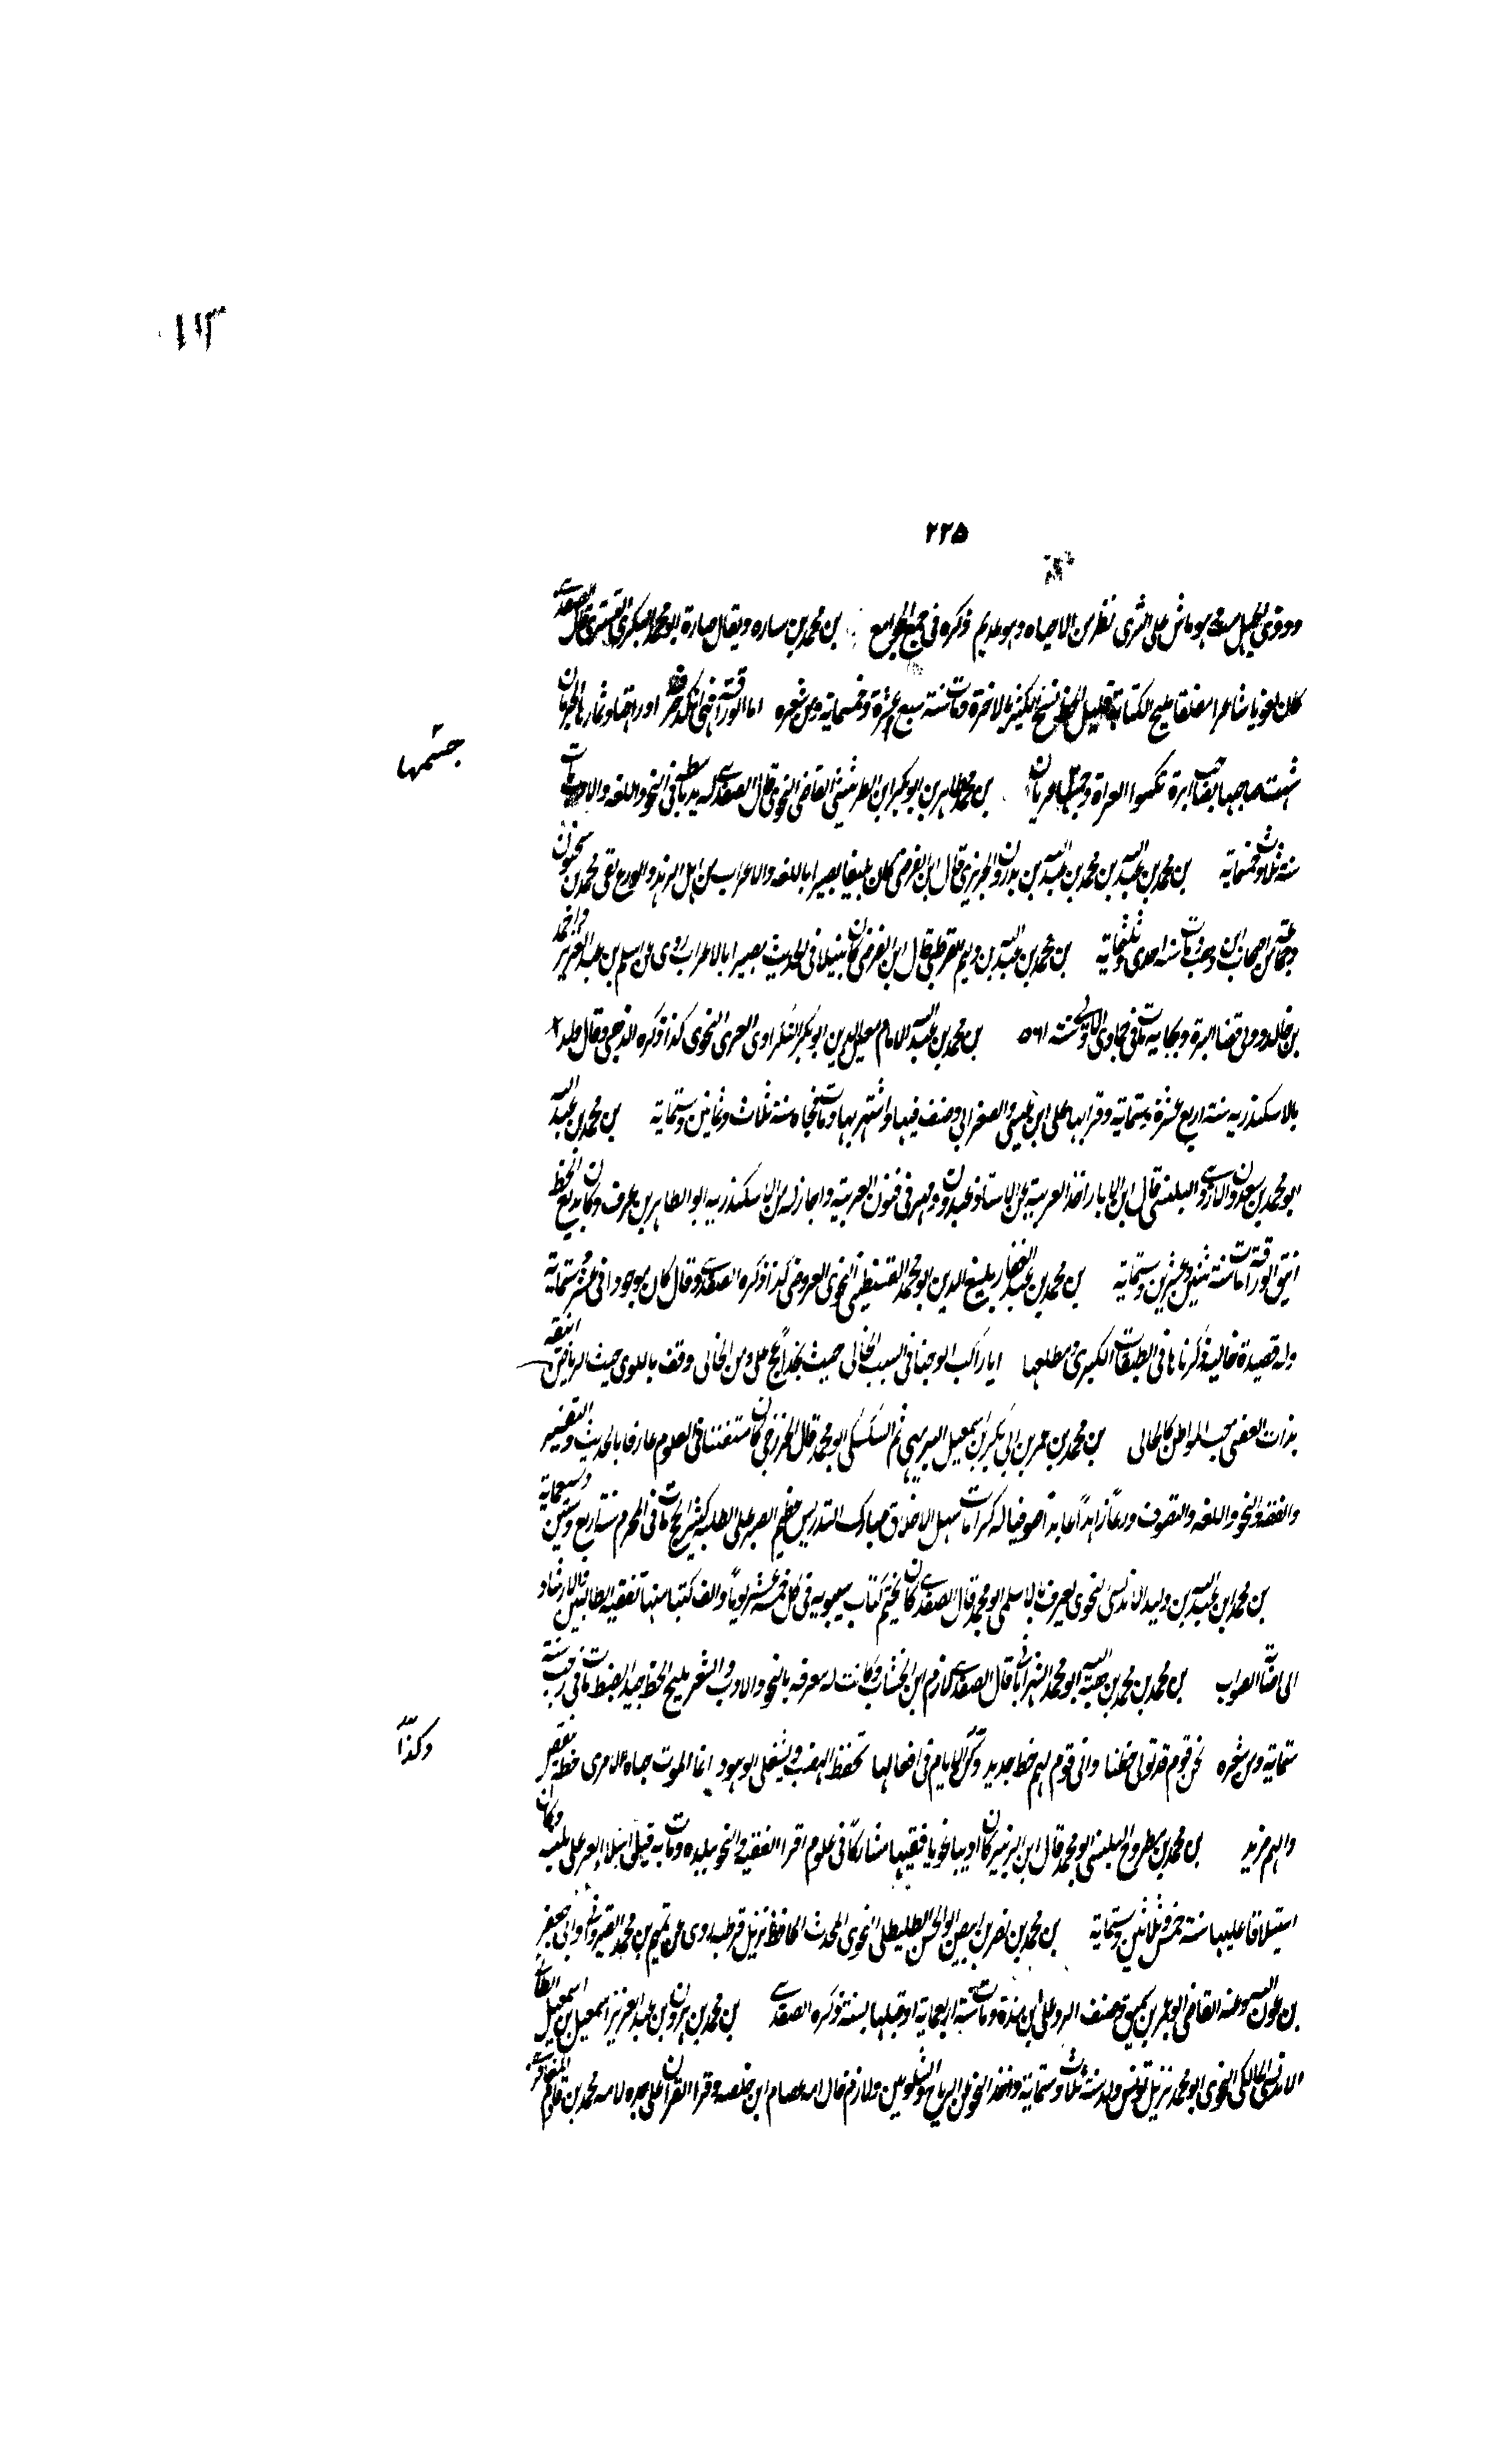 ١١٣
٢٢٥
وذو الجهل ميت وهو ماش على الثرى نظن من الاحياء وهو عديم ذكره في جمع الجوامع بن محمد بن ساره ويقال صارة ابو محمد البكري الشنتري قال الصفدي
كان لغويا شاعرا مفلقا مليح الكتابة قليل الحظ نسخ الكثير بالاخرة ومات سنة سبع عشرة وخمسماية ومن شعره اما الوراقة فهي انكد حرفة اوراقها وثمارها الحرمان
شبهت صاحبها بصاحب ابرة تكسوا العراة وجسمها عريان بن محمد طاهر بن ابو بكر ابن الطرثيثي القاضي النحوي قال الصفدي له يد باسطة في النحو واللغة والادب مات
جسمها
سنة ثلاث وخمسماية بن محمد بن عبد الله بن محمد بن عبد الله بن بدرون الجزيري قال ابن الفرضي كان بليغا بصيرا باللغة والاعراب من اهل الزهد والورع لقى محمد بن سحنون
وجماعة من اصحاب ابن وهب ومات سنة احدى وثلثماية بن محمد بن عبد الله بن دليم القرطبي قال ابن الفرضي كان نبيلا في الحديث بصيرا بالاعراب روى عن اسلم بن عبد العزيز واحمد
بن خالد وولى قضا البيرة وبجانه مات في جمادى الاولى سنة ٥٦١ بن محمد بن عبد الله الامام معين الدين ابو بكر النكزاوي المقرى النحوي كذا ذكره الذهبي وقال ولد
بالاسكندرية سنة اربع عشرة وستماية وقرا بها على ابن عيسى والصفراوي وصنف فيها واشتهر بها ومات فجاه سنة ثلاث وثمانين وستماية بن محمد بن عبد الله
ابو محمد بن سعدون الازدي البلنسي قال ابن الابار اخذ العربية عن الاستاذ عبدون ومهر في فنون العربية واجاز له من الاسكندرية ابو الطاهر بن عوف وكان بديع الخط
انيق الوراقة مات سنة ثنتين وعشرين وستماية بن محمد بن عبد الغفار بليغ الدين ابو محمد القسنطيني النحوي العروضي كذا ذكره الصفدي وقال كان موجودا في عشر ستماية
وله قصيدة خالية ذكرناها في الطبقات الكبرى ومطلعها ايا راكب الوجنا في السبب الخالي حيث تجد عج على ومن الخالي وقف باللوى حيث الرياض انيقة
بذات الغضى سحب المواطن كالخالي بن محمد بن عمر بن ابي بكر بن اسمعيل البريهي ثم السكسكي ابو محمد قال الخزرجي كان متفننا في العلوم عارفا بالحديث والتفسير
والفقه والنحو واللغة والتصوف ورعا زاهدا عابدا صوفيا له كرامات سهل الاخلاق مبارك التدريس عظيم الصبر على الطلبة كثير الحج مات في المحرم سنة اربع وستين وسبعماية
بن محمد ابن عبد الله بن وليد الاندلسي النحوي يعرف بالاسلمي ابو محمد قال الصفدي كان يختم كتاب سيبويه في كل خمسة عشر يوما والف كتبا منها تفقيه الطالبين والارشاد
الى اصابة الصواب بن محمد بن محمد بن هبة الله ابو محمد الشهراباني قال الصفدي لازم ابن الخشاب وكانت له معرفه بالنحو والادب والشعر مليح الخط جيد الضبط مات في رجب سنة
ستماية ومن شعره نحن قوم قد تولى حظنا واتى قوم لهم حظ جديد وكذا الايام في افعالها تخفض الهضب ويستعلى الوهود انما الموت حياة لامرى حظه ينقص
وكذا
والهم يزيد بن محمد بن مطروح البلنسي ابو محمد قال ابن الزبير كان اديبا نحويا فقيها مشاركا في علوم اقرا الفقه والنحو ببلده ومات به قبل استيلا العدو على بلنسيه وكان
استيلاؤها عليها سنة خمس وثلاثين وستماية بن محمد بن نصر بن ابيض ابو الحسن الطليطلي النحوي المحدث الحافظ نزيل قرطبه روى عن تميم بن محمد القيرواني وابي جعفر
بن عون الله وعنه القاضي ابو عمر بن سميق وصنف الرد على ابن مسرة ومات سنة اربعماية او قبلها بسنة ذكره الصفدي بن محمد بن هرون بن عبد العزيز اسمعيل بن اسمعيل الطائي
الاندلسي المالكي النحوي ابو محمد نزيل تونس ولد سنة ثلاث وستماية واخذ النحو عن الدباج والشلوبين ولازم خال امه عصام ابن خلصه وقرا القران على جده لامه محمد بن قادم المعافري